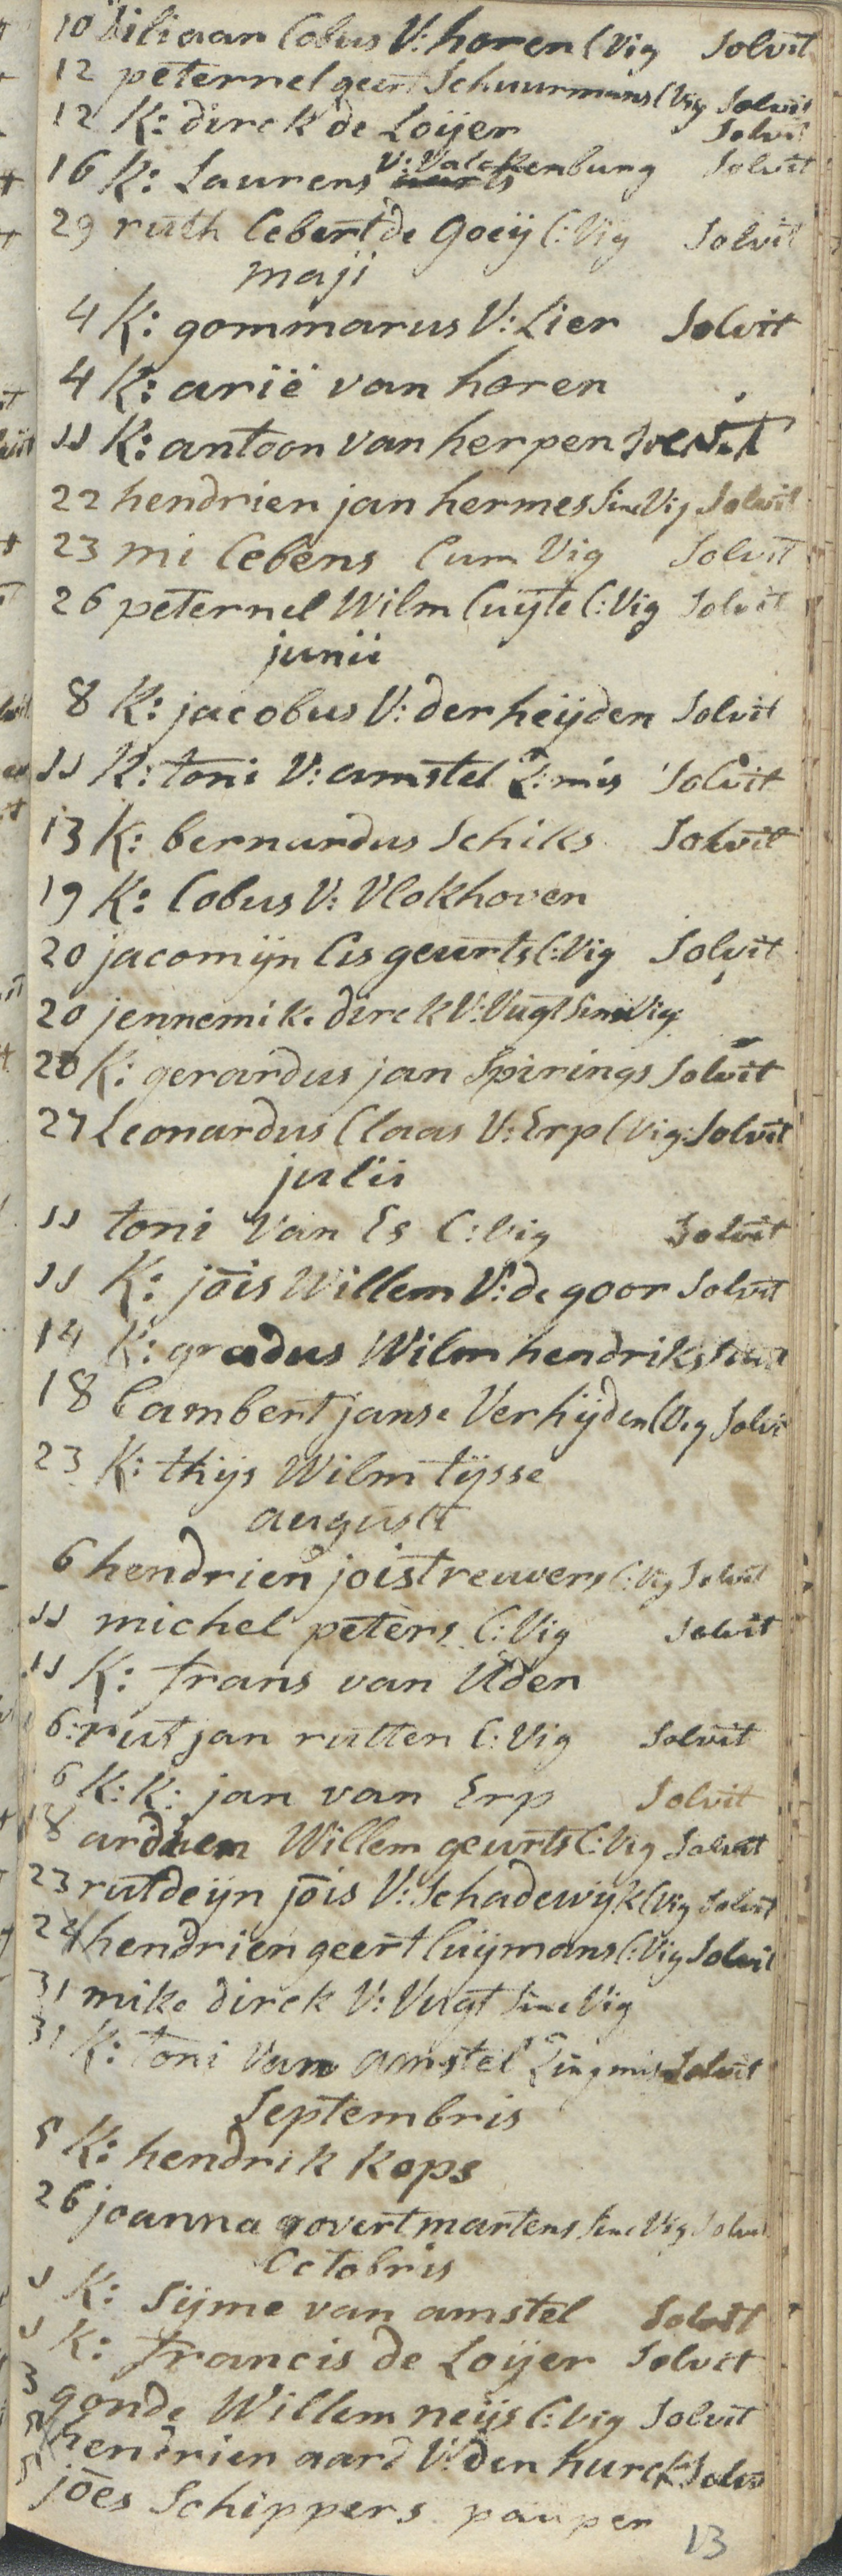 10 diliaan Cobus V: horen C Vig Solvit
12 peternel geert Schuurmans C Vig Solvit
12 K: dirck de Loijer Solvit
16 K: Laurens V: Valckenburg Solvit
29 ruth Lebert de Goeij C: Vig Solvit
maji
4 K: gommarus V: Lier Solvit
4 K: arië van horen
11 K: antoon van herpen Solvit
22 hendrien jan hermes Sine Vig Solvit
23 mi Lebens Cum Vig Solvit
26 peternel Wilm Cuijte C: Vig Solvit
junii
8 K: jacobus V: der heijden Solvit
11 K: toni V: amstel L: mis Solvit
13 K: bernardus Schiks Solvit
19 K: Cobus V: Vlokhoven
20 jacomijn Cis geurts C: Vig Solvit
20 jennemike dirck V: Vugt Sine Vig
20 K: gerardus jan Spirings Solvit
27 Leonardus Claas V: Erp C Vig: Solvit
julii
11 toni Van Es C: Vig Solvit
11 K: jōis Willem V: de goor Solvit
14 K: gradus Wilm hendriks Solvit
18 Lambert janse Verhijden C Vig Solvi
23 K: thijs Wilm tijsse
augusti
6 hendrien jois treuvers C: Vig Solvit
11 michel peters C: Vig Solvit
11 K: frans van Uden
6: rut jan rutten C: Vig Solvit
6 K: K: jan van Erp Solvit
18 ardien Willem geurts C: Vig Solvit
23 rutdeijn jōis V: Schadewijk C Vig Solvit
24 hendrien geert Cuijmans C: Vig Solvit
31 mike dirck V: Vugt Sine Vig
31 K: toni Van amstel Zing mis Solvit
Septembris
5 K: hendrik Kops
26 joanna govert martens Sine Vig Solvit
Octobris
1 K: Sijme van amstel Solvit
1 K: francis de Loijer Solvit
3 gonde Willem neijs C: Vig Solvit
5 hendrien aard V: den hurck Solvi
5 jōes Schippers pauper
13